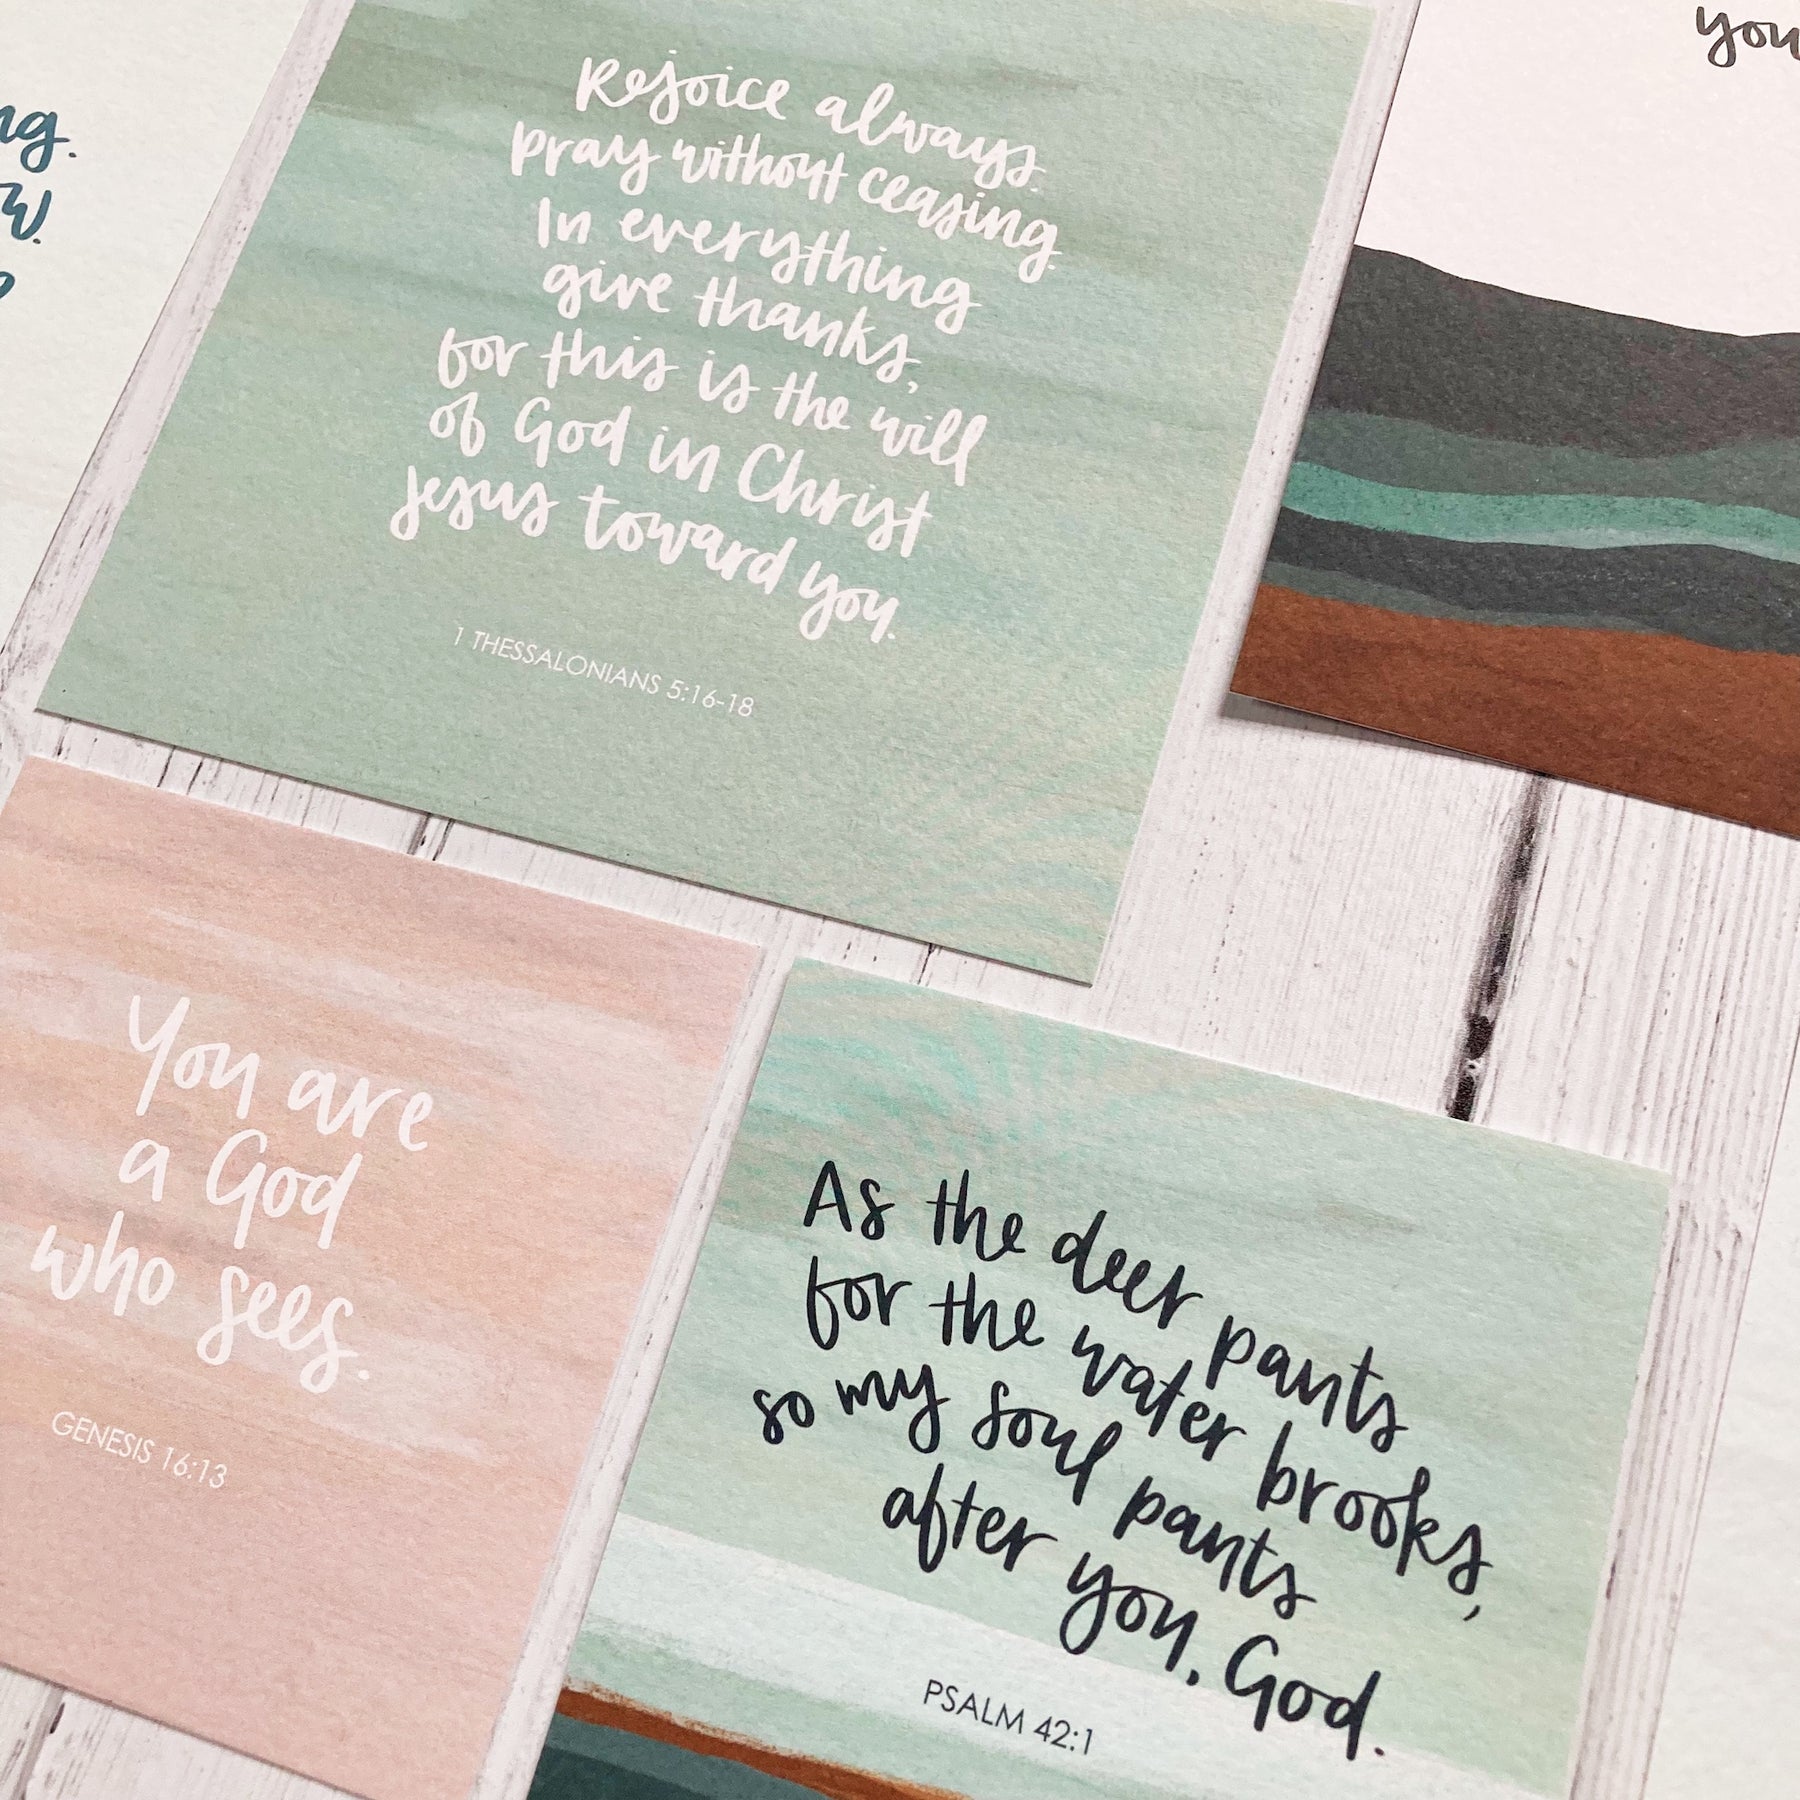 Rejoice always.
pray without ceasing.
In everything
give thanks,
for this is the will
of God in Christ
Jesus toward you.
1 THESSALONIANS 5:16-18
You are
a God
who sees.
GENESIS 16:13
As the deer pants
for the water brooks,
so my soul pants
after you, God.
PSALM 42:1